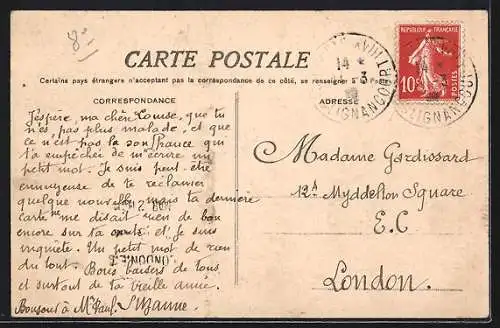 CARTE POSTALE
Certains pays étrangers n'acceptant pas la correspondance de ce côté, se renseigner à la Poste
CORRESPONDANCE
ADRESSE
RÉPUBLIQUE FRANÇAISE
10c
POSTES
CLIGNANCOURT
CLIGNANCOURT
J'espère, ma chère Louise, que tu
n'es pas plus malade, et que
ce n'est pas la souffrance qui
t'a empêchée de m'écrire un
petit mot. Je suis peut-être
ennuyeuse de te réclamer
quelque nouvelle, mais ta dernière
carte me disait rien de bon
encore sur ta santé et je suis
inquiète. Un petit mot de rien
du tout. Bons baisers de tous
et surtout de ta vieille amie.
Suzanne
Bonsoir à Mr Paul.
LONDON
Madame Gardissard
12A Myddelton Square
E.C
London.